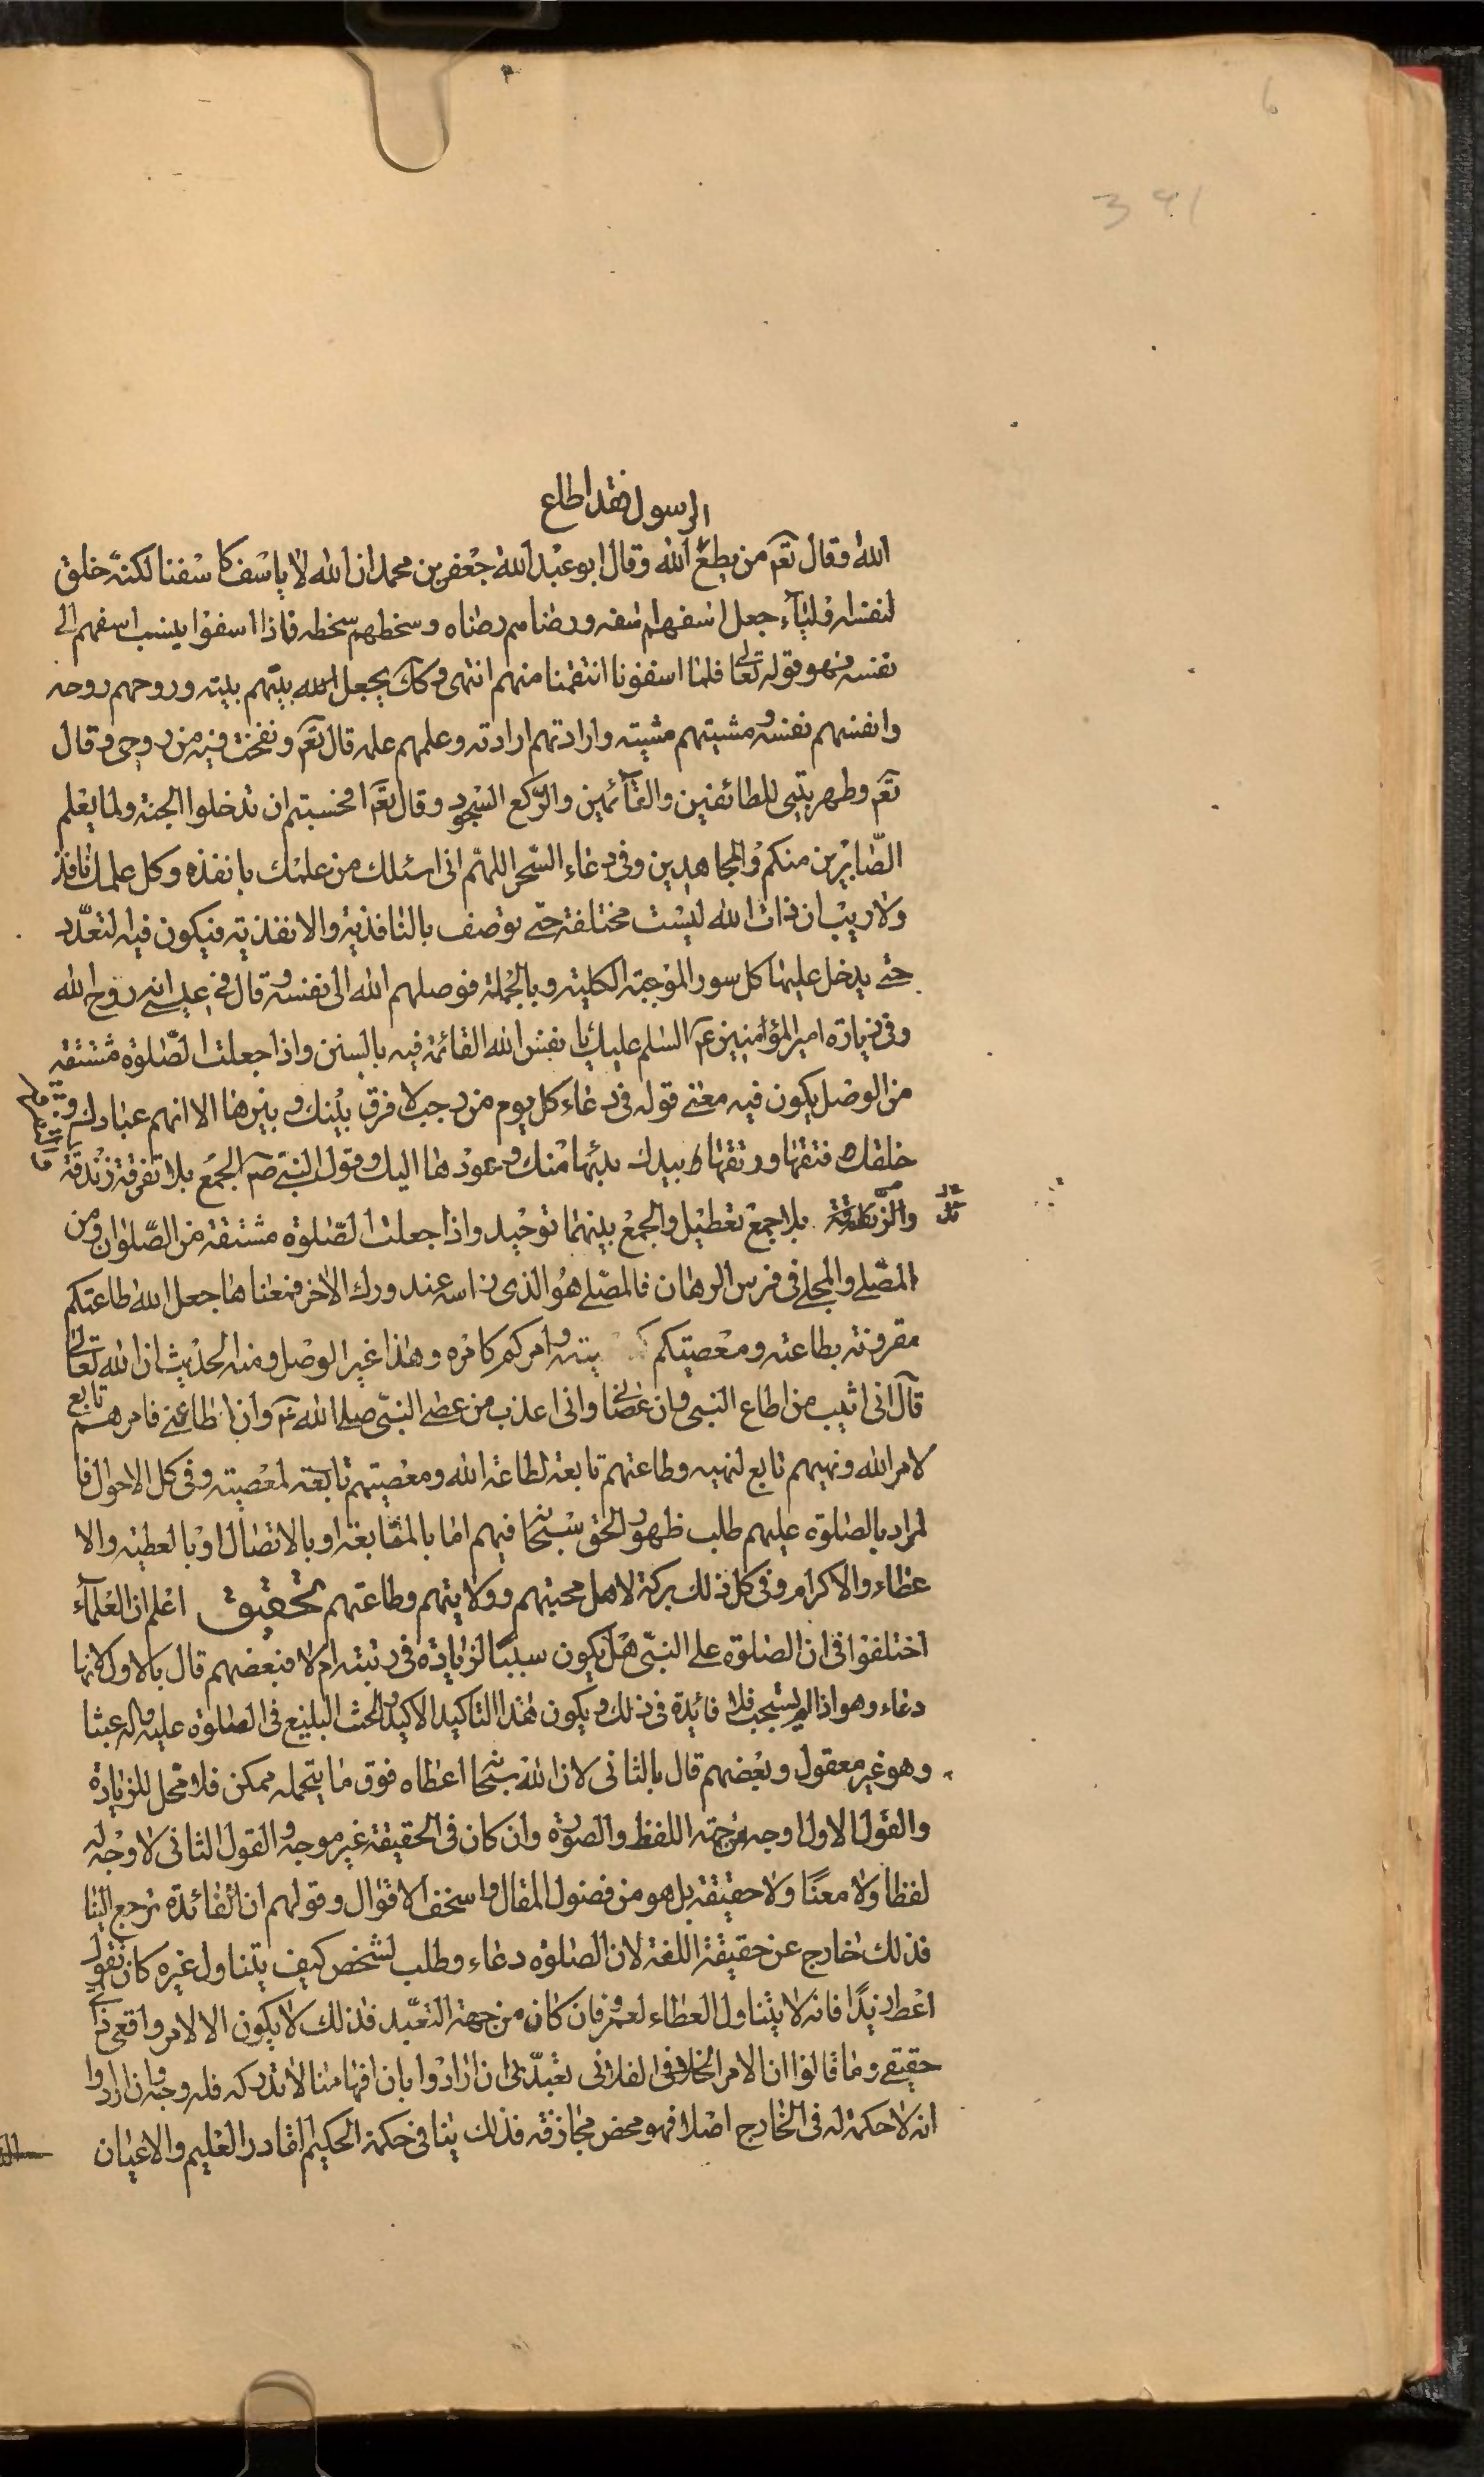 الرسول فقد اطاع
الله وقال تعم من يطع الله وقال ابو عبد الله جعفر بن محمد ان الله لا ياسف كاسفنا لكنه خلق
لنفسه اولياء جعل اسفهم اسفه ورضاهم رضاه وسخطهم سخطه فاذا اسفوا ينسب اسفهم الى
نفسه فهو قوله تعالى فلما اسفونا انتقمنا منهم انتهى وكك يجعل الله بيتهم بيته وروحهم روحه
وانفسهم نفسه ومشيتهم مشيته وارادتهم ارادته وعلمهم علمه قال تعم ونفخت فيه من روحى وقال
تعم وطهر بيتى للطائفين والقآئمين والركع السجود وقال تعم ام حسبتم ان تدخلوا الجنة ولما يعلم
الصابرين منكم والمجاهدين وفى دعاء السحر اللهم انى اسئلك من علمك بانفذه وكل علمك نافذ
ولا ريب ان ذات الله ليست مختلفة حتى توصف بالنافذية والانفذية فيكون فيه التعدد
حتى يدخل عليها كل سور الموجبة الكلية وبالجملة فوصلهم الله الى نفسه وقال فى عيسى انه روح الله
وفى زيارة امير المؤمنين عم السلم عليك يا نفس الله القائمة فيه بالسنن واذا جعلت الصلوة مشتقة
من الوصل يكون فيه معنى قوله فى دعاء كل يوم من رجب لا فرق بينك وبينها الا انهم عبادك و
خلقك فتقها ورتقها بيدك بدئها منك وعودها اليك وقول النبى صم الجمع بلا تفرقة زندقة
والتفرقة بلا جمع تعطيل والجمع بينهما توحيد واذا جعلت الصلوة مشتقة من الصلوان ومن
المصلى والمجلى فى فرس الرهان فالمصلى هو الذى راسه عند ورك الاخر فمعناها جعل الله طاعتكم
مقرونة بطاعته ومعصيتكم وامركم كامره وهذا غير الوصل ومنه الحديث ان الله تعالى
قال انى اثيب من اطاع النبى وان عصانى وانى اعذب من عصى النبى صلى الله عم وان اطاعنى فامرهم تابع
لامر الله ونهيهم تابع لنهيه وطاعتهم تابعة لطاعة الله ومعصيتهم تابعة لمعصيته وفى كل الاحوال فا
لمراد بالصلوة عليهم طلب ظهور الحق سبحانه فيهم اما بالمتابعة او بالاتصال او بالعطية والا
عطاء والاكرام وفى كل ذلك بركة لاهل محبتهم وولايتهم وطاعتهم تحقيق اعلم ان العلمآء
اختلفوا فى ان الصلوة على النبى هل يكون سببا لزيادة فى رتبته ام لا فبعضهم قال بالاول لانها
دعاء وهو اذا لم يستجب فلا فائدة فى ذلك ويكون هذا التاكيد الاكيد والحث البليغ فى الصلوة عليه واله عبثا
وهو غير معقول وبعضهم قال بالثانى لان الله سبحانه اعطاه فوق ما يتحمله ممكن فلا محل للزيادة
والقول الاول اوجه من جهة اللفظ والصورة وان كان فى الحقيقة غير موجه والقول الثانى لا وجه له
لفظا ولا معنا ولا حقيقة بل هو من فضول المقال واسخف الاقوال وقولهم ان الفائدة ترجع الينا
فذلك خارج عن حقيقة اللغة لان الصلوة دعاء وطلب لشخص كيف يتناول غيره كان تقول
اعط زيدا فانه لا يتناول العطاء لعمرو فان كان من جهة التعبد فذلك لا يكون الا لامر واقعى
حقيقى وما قالوا ان الامر الفلانى تعبدى ان ارادوا بان افهامنا لا تدركه فله وجه وان ارادوا
انه لا حكمة له فى الخارج اصلا فهو محض مجازفة فذلك ينافى حكمة الحكيم القادر العليم والاعيان